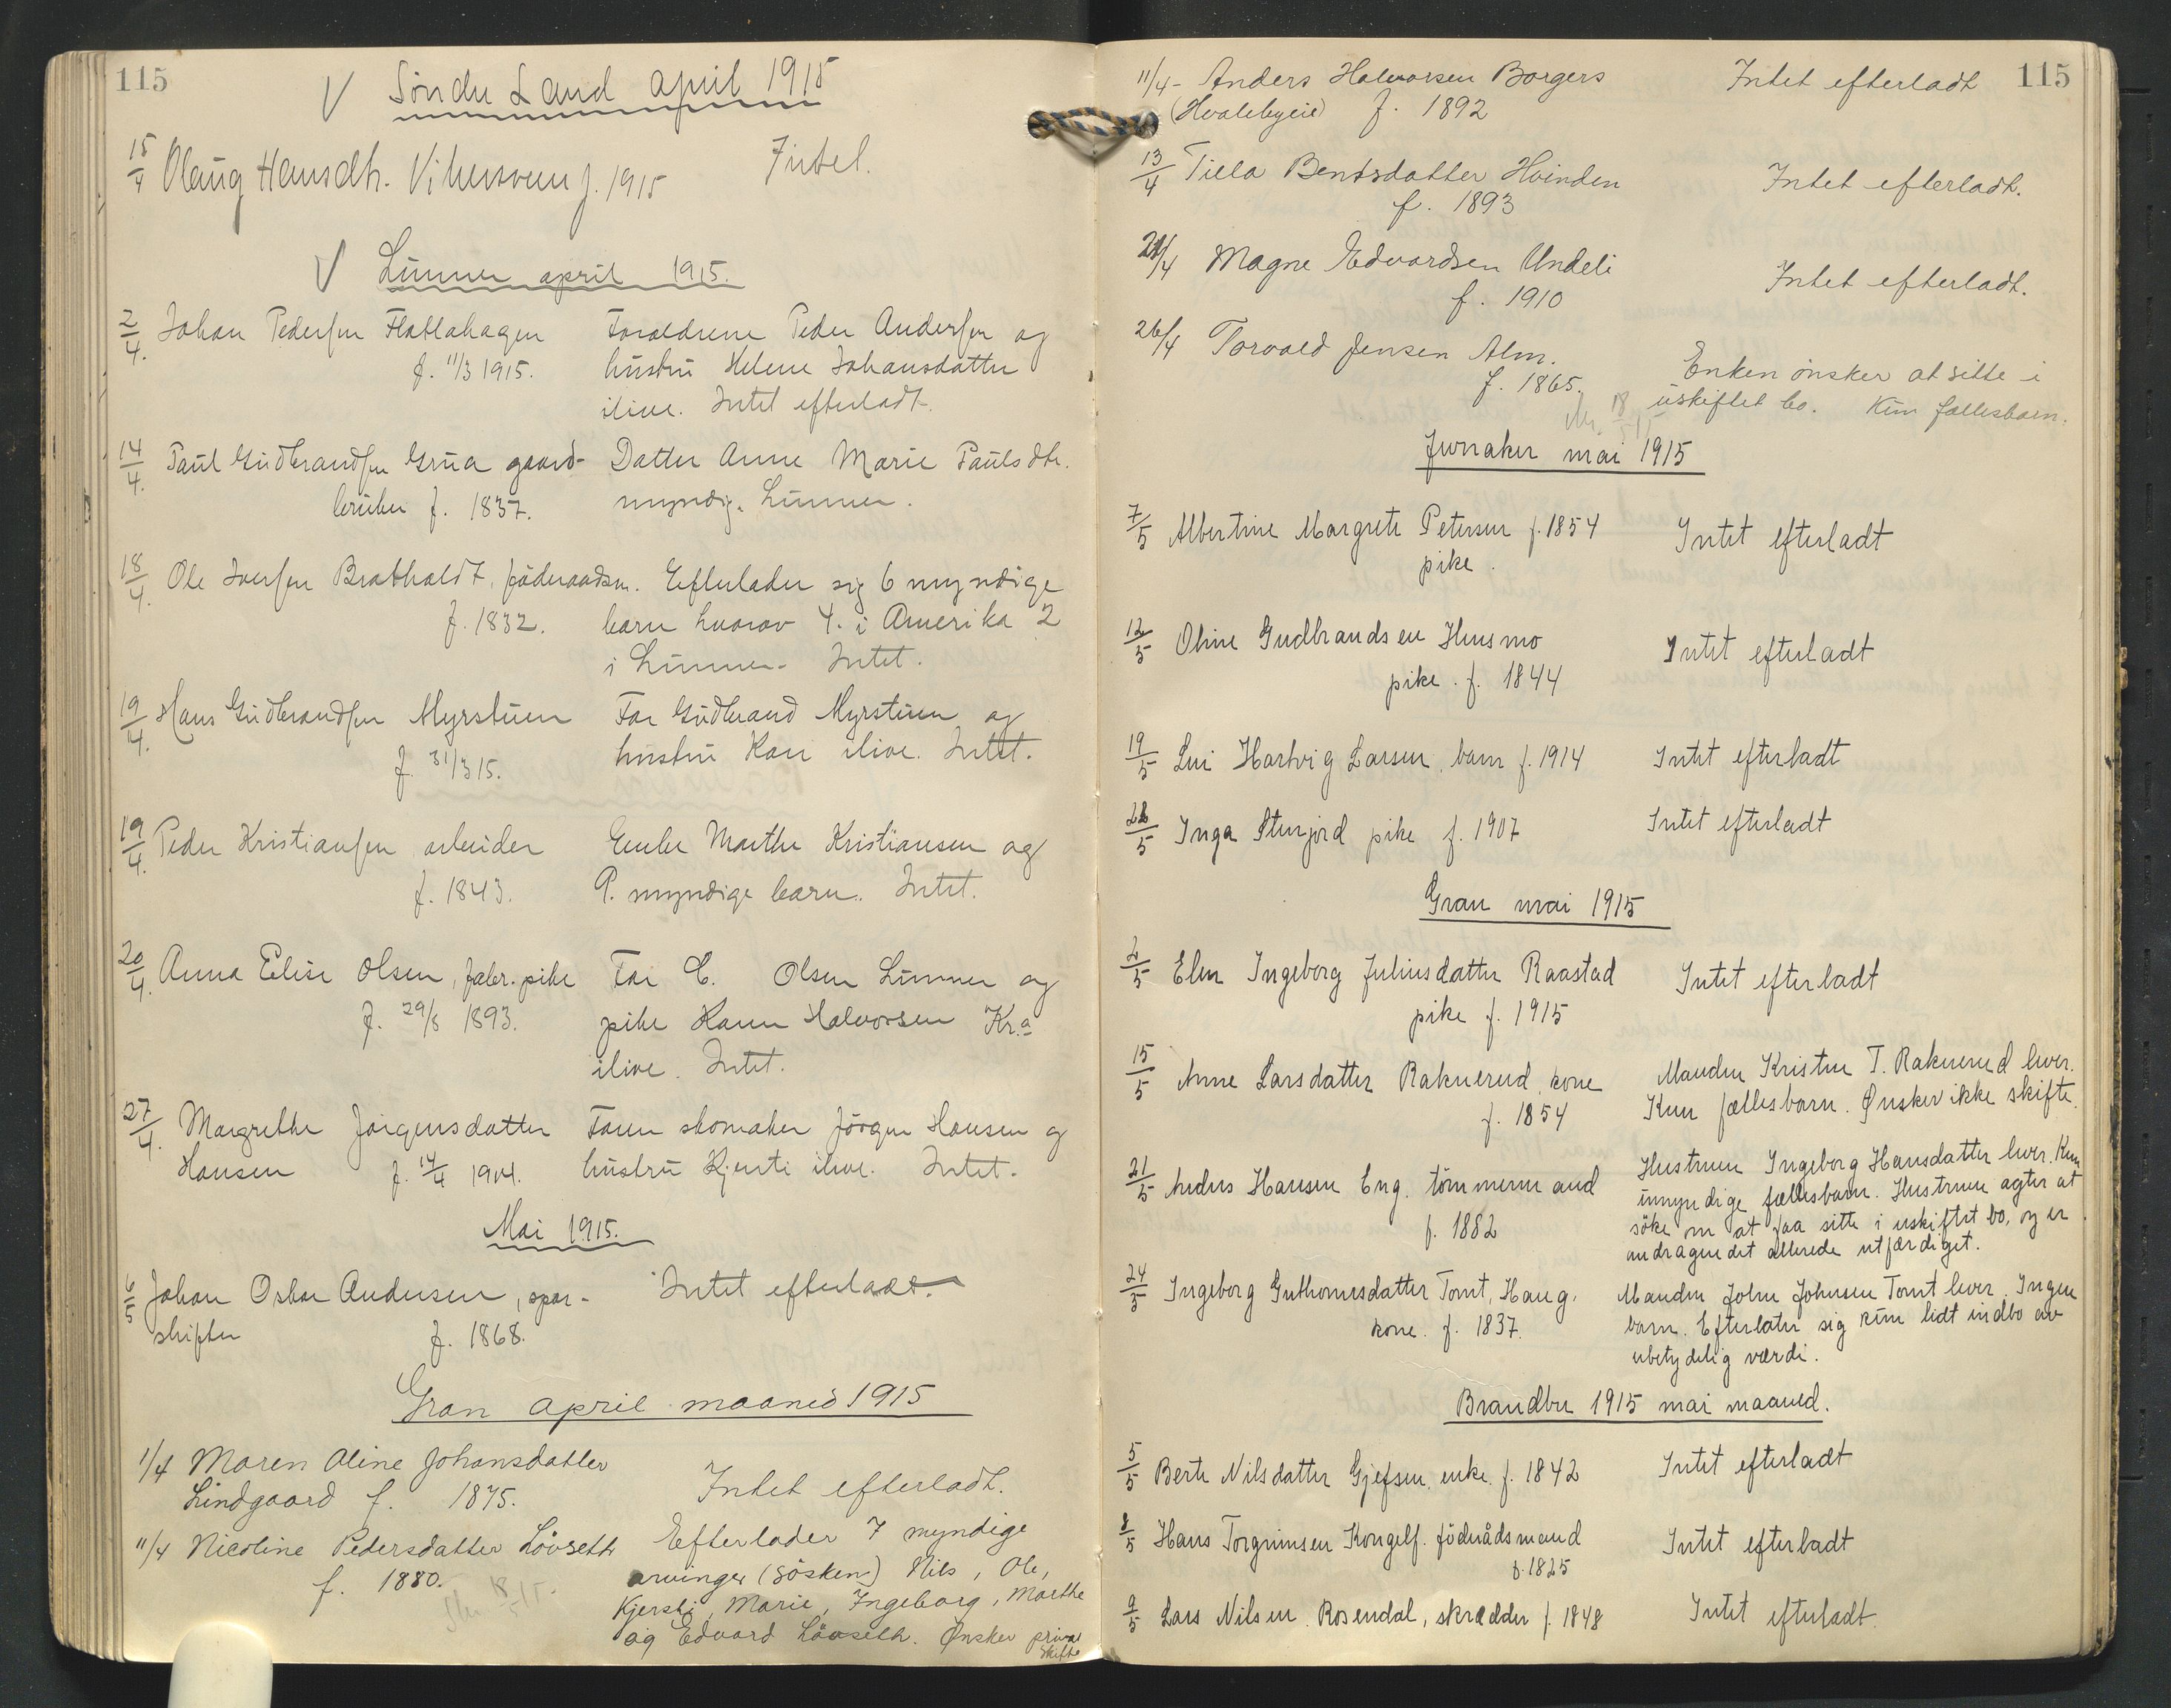 115
√ Søndre Land april 1915
15/4 Olaug Hansdtr. f. 1915 Intet.
√ Lunner april 1915.
2/4. Johan Pedersen Flatlahagen Foræld­rene Peder Andersen og
f. 11/3 1915. hustru Helene Johansdatter
ilive. Intet efterladt.
14/4. Paul Gudbrandsen Grua gaard- Datter Anne Marie Paulsdtr.
bruker f. 1837. myndig. Lunner.
18/4. Ole Iversen Bratvaldt, föderaadsm. Efterlader sig 6 myndige
f. 1832. barn hvorav 4. i Amerika 2
i Lunner. Intet.
19/4. Hans Gudbrandsen Myrstuen Far Gudbrand Myrstuen og
f. 31/3 15. hustru Kari ilive. Intet.
19/4. Peder Kristiansen arbeider Enke Marthe Kristiansen og
f. 1843. 9. myndige barn. Intet.
20/4. Anna Elise Olsen, fabr. pike Far E. Olsen Lunner og
f. 29/8 1893. pike Karen Halvorsen Kr.a
ilive. Intet.
27/4. Margrethe Jörgensdatter Faren skomaker Jörgen Hansen og
Hansen f. 14/4 1904. hustru Kjersti ilive. Intet.
Mai 1915.
6/5 Johan Oskar Andersen, spor- Intet efterladt.
skifter f. 1868.
Gran april maaned 1915
1/4 Maren Oline Johansdatter
Lindgaard f. 1875. Intet efterladt.
11/4 Nicoline Pedersdatter Lövseth Efterlader 7 myndige
f. 1880. arvinger (sösken) Nils, Ole,
18/5 15.
Kjersti, Marie, Ingeborg, Marthe
og Edvard Lövseth. Ønsker privat
skifte
11/4 - Anders Halvorsen Borgers Intet efterladt 115
(Hvalebyeie) f. 1892
13/4 Tiela Bentsdatter Hvinden Intet efterladt.
f. 1893
21/4 Magne Edvardsen Undeli Intet efterladt.
f. 1910
26/4 Torvald Jensen Alm. Enken önsker at sitte i
f. 1865. uskiftet bo. Kun fællesbarn.
18/5 15
Jevnaker mai 1915
7/5 Albertine Margrete Petersen f. 1854 Intet efterladt
pike.
12/5 Oline Gudbrandsen Husmo Intet efterladt
pike. f. 1844
19/5 Lui Hartvig Larsen, barn f. 1914 Intet efterladt
28/5 Inga Stenjord pike f. 1907 Intet efterladt
Gran mai 1915
2/5 Elen Ingeborg Juliusdatter Raastad Intet efterladt
pike f. 1915
15/5 Anne Larsdatter Raknerud kone Manden Kristen T. Raknerud lever.
f. 1854 Kun fællesbarn. Ønsker ikke skifte.
21/5 Anders Hansen Eng. tömmermand Hustruen Ingeborg Hansdatter lever. Kun
f. 1882 umyndige fællesbarn. Hustruen agter at
söke om at faa sitte i uskiftet bo, og er
andragendet allerede utfærdiget.
24/5 Ingeborg Guthormsdatter Tomt, Haug. Manden John Johnsen Tomt lever. Ingen
kone. f. 1837. barn. Efterlater sig kun lidt indbo av
ubetydelig værdi.
Brandbu 1915 mai maaned.
5/5 Berte Nilsdatter Gjefsen, enke. f. 1842 Intet efterladt
8/5 Hans Torgrimsen Kongelf. föderådsmand Intet efterladt
f. 1825
9/5 Lars Nilsen Rosendal, skrædder f. 1848 Intet efterladt